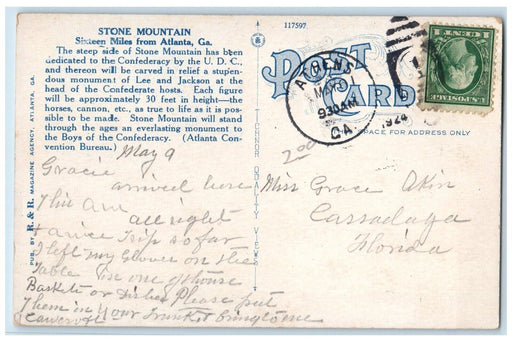 STONE MOUNTAIN
Sixteen Miles from Atlanta, Ga.
The steep side of Stone Mountain has been
dedicated to the Confederacy by the U. D. C.,
and thereon will be carved in relief a stupen-
dous monument of Lee and Jackson at the
head of the Confederate hosts. Each figure
will be approximately 30 feet in height—the
horses, cannon, etc., as true to life as is pos-
sible to be made. Stone Mountain will stand
through the ages an everlasting monument to
the Boys of the Confederacy. (Atlanta Con-
vention Bureau.)
PUB. BY R. & R. MAGAZINE AGENCY, ATLANTA, GA.
TICHNOR QUALITY VIEWS
117597
POST CARD
SPACE FOR ADDRESS ONLY
ATHENS
MAY
930AM
GA.
1924
2.00
May 9
Gracie
arrived here
all right
& a nice Trip so far
I left my Glover on the
Table in one of those
Baskets or Dishes Please put
Them in your Trunk & bring to me
Miss Grace Akin
Cassadaga
Florida